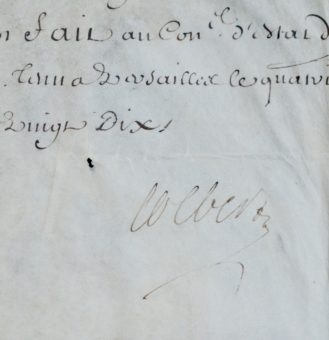 fait au Con.el d'estat d
tenu a Versailles le quatri
Vingt Dix
Colbert